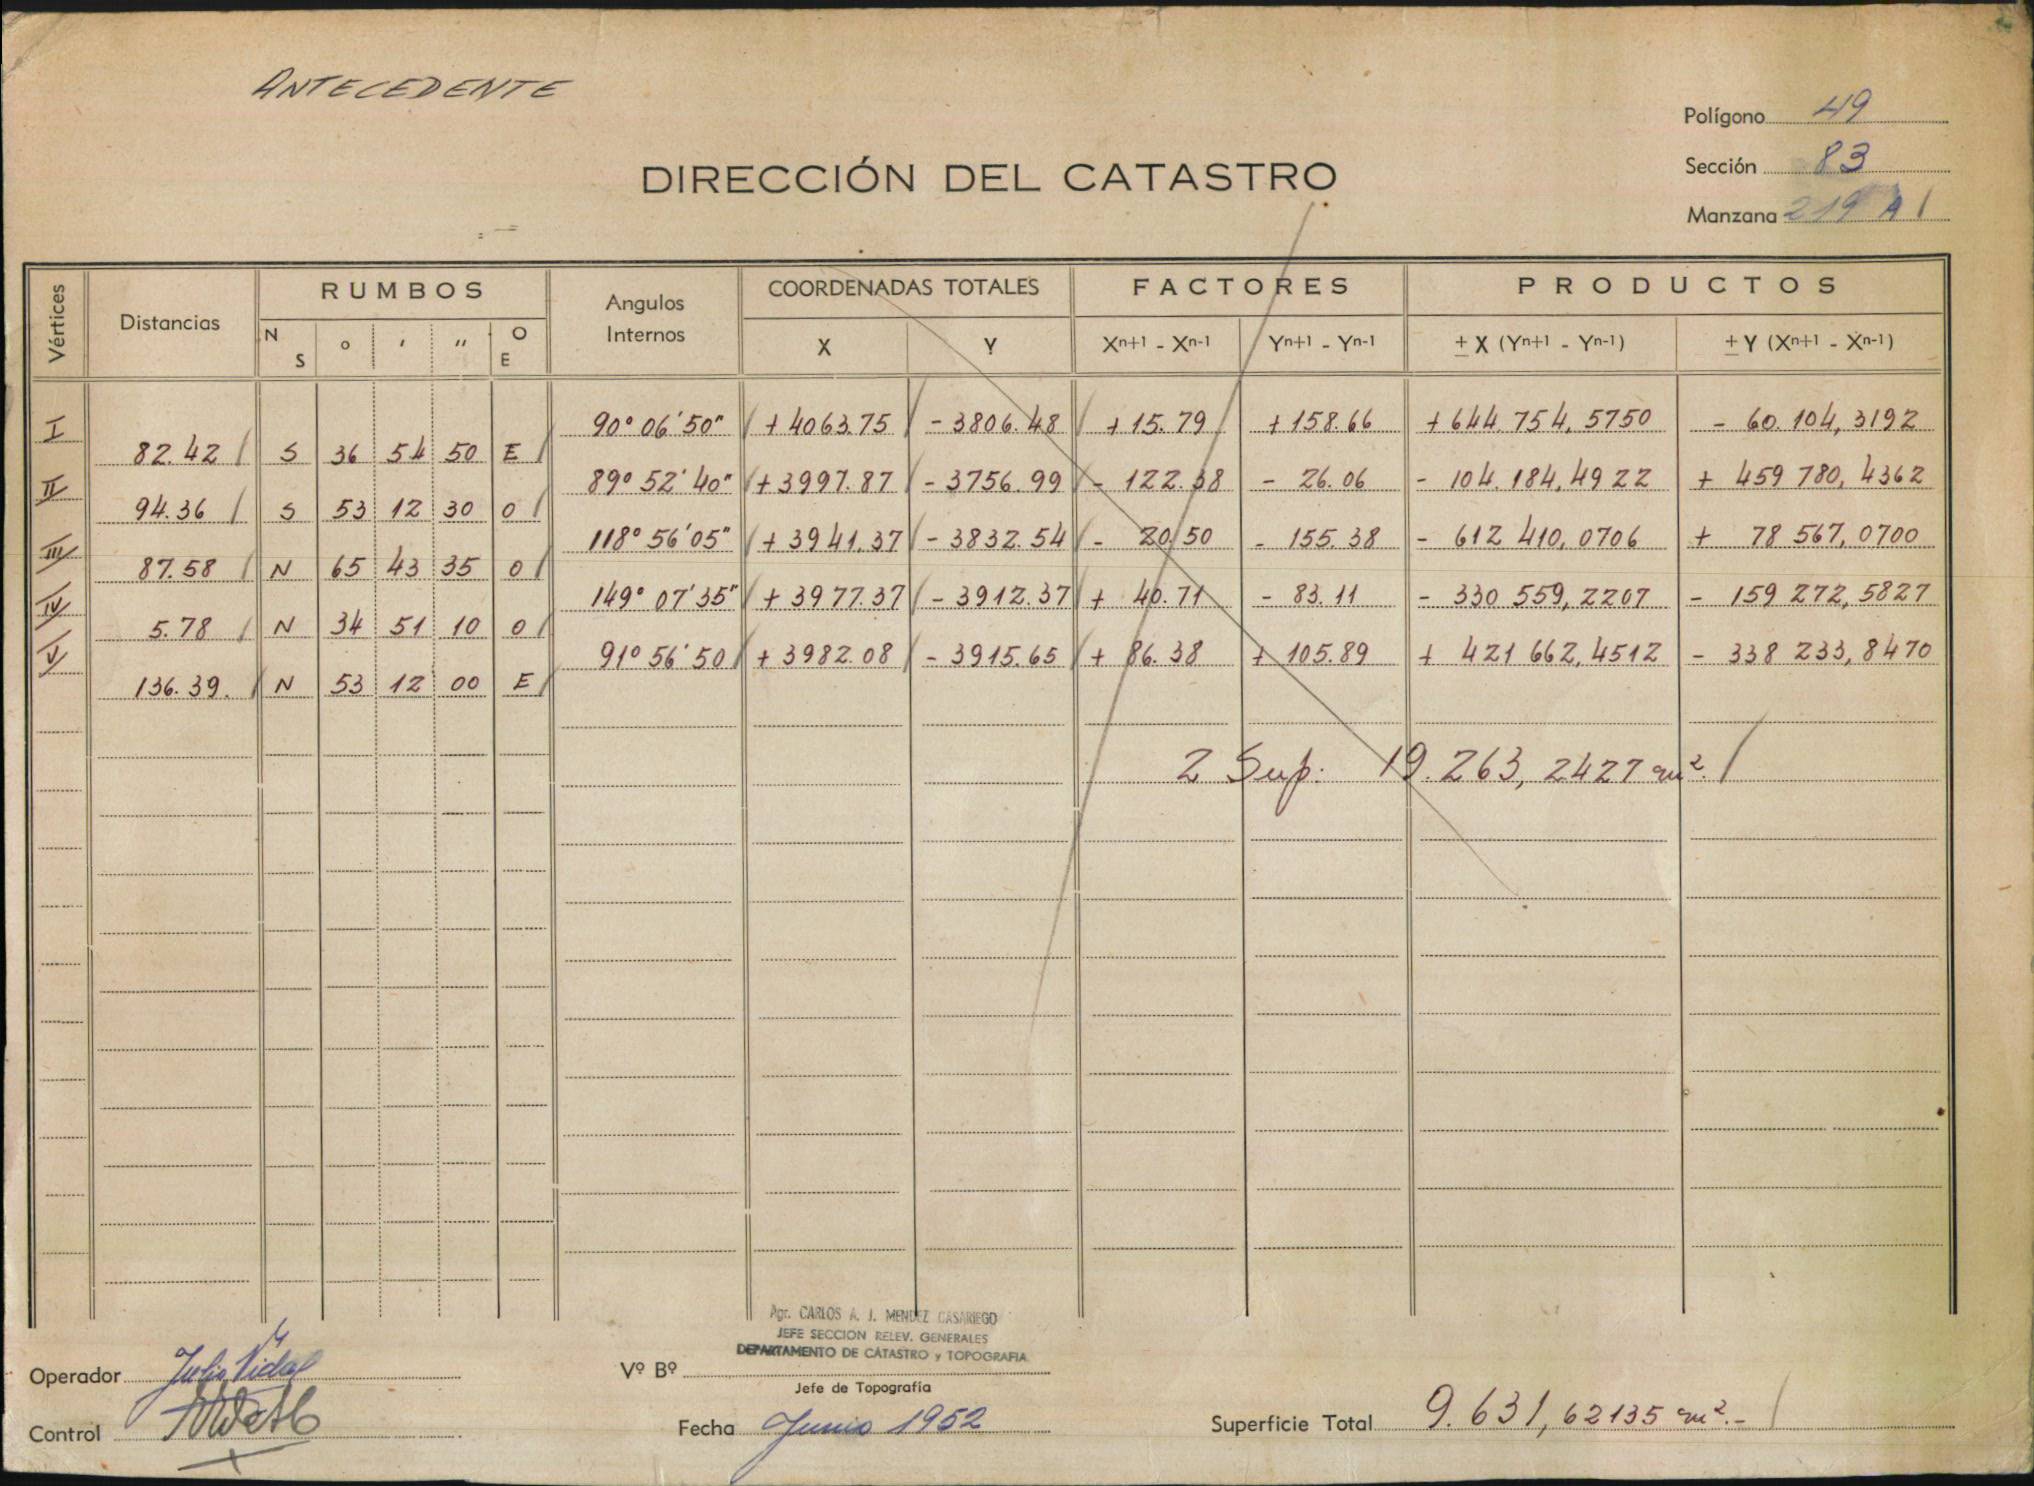 ANTECEDENTE
Polígono 49
Sección 83
Manzana 219 A
DIRECCIÓN DEL CATASTRO
Vértices Distancias RUMBOS Angulos Internos COORDENADAS TOTALES FACTORES PRODUCTOS
N S ° ' " O E X Y Xn+1 - Xn-1 Yn+1 - Yn-1 ± X (Yn+1 - Yn-1) ± Y (Xn+1 - Xn-1)
I 90° 06' 50" + 4063.75 - 3806.48 + 15.79 + 158.66 + 644.754,5750 - 60.104,3192
82.42 S 36 54 50 E
II 89° 52' 40" + 3997.87 - 3756.99 - 122.38 - 26.06 - 104.184,4922 + 459 780,4362
94.36 S 53 12 30 O
III 118° 56' 05" + 3941.37 - 3832.54 - 20.50 - 155.38 - 612 410,0706 + 78 567,0700
87.58 N 65 43 35 O
IV 149° 07' 35" + 3977.37 - 3912.37 + 40.71 - 83.11 - 330 559,2207 - 159 272,5827
5.78 N 34 51 10 O
V 91° 56' 50 + 3982.08 - 3915.65 + 86.38 + 105.89 + 421 662,4512 - 338 233,8470
136.39. N 53 12 00 E
2 Sup: 19.263,2427 m².
Agr. CARLOS A. J. MENDEZ CASARIEGO
JEFE SECCION RELEV. GENERALES
DEPARTAMENTO DE CATASTRO y TOPOGRAFIA
Operador Julio Vidal
Vº Bº
Jefe de Topografía
Control
Fecha Junio 1952
Superficie Total 9.631,62135 m².-